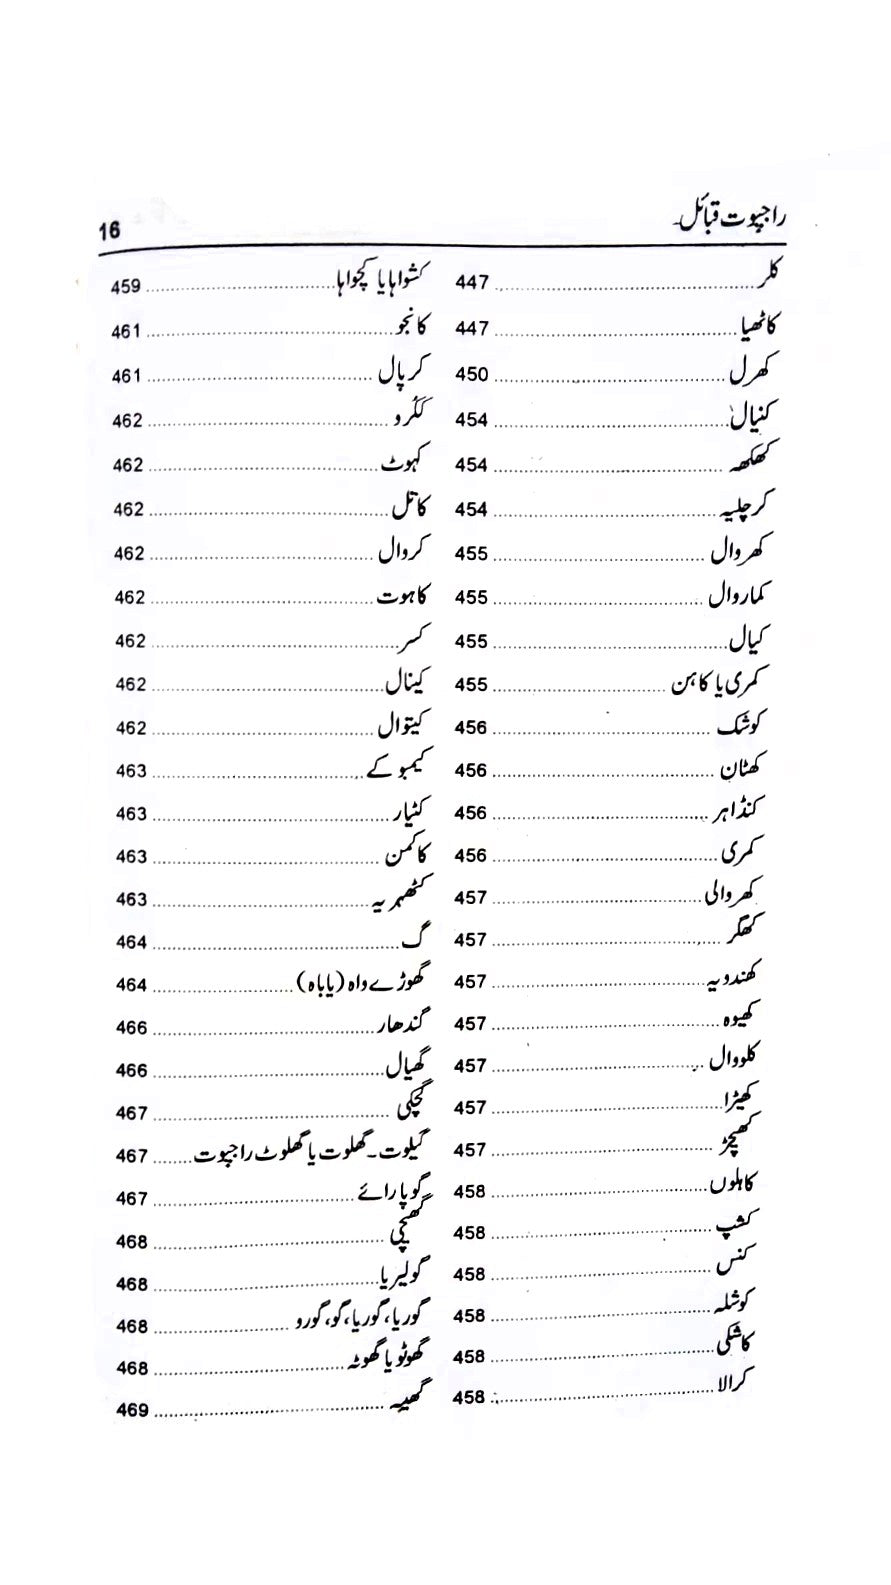 راجپوت قبائل
16
کلر 447
کاٹھیا 447
کھرل 450
کنیال 454
کھکھہ 454
کرچلیہ 454
کھروال 455
کماروال 455
کیال 455
کمری یا کاہن 455
کوشک 456
کھٹان 456
کنڈاہر 456
کمری 456
کھروالی 457
کھگر 457
کھندویہ 457
کھیوہ 457
کلووال 457
کھیڑا 457
کھیچڑ 457
کاہلوں 458
کشپ 458
کنس 458
کوشلہ 458
کاشکی 458
کرالا 458
کشواہا یا کچھواہا 459
کانجو 461
کرپال 461
ککرو 462
کہوٹ 462
کاتل 462
کروال 462
کاہوت 462
کسر 462
کینال 462
کیتوال 462
کیمبو کے 463
کٹیار 463
کاکمن 463
کٹھمریہ 463
گ 464
گھوڑے واہ (یا باہ) 464
گندھار 466
گھیال 466
گچکی 467
گیلوت۔ گھلوت یا گھلوٹ راجپوت 467
گوپا رائے 467
گھیچی 468
گولیریا 468
گوریا، گوریا، گو، گورو 468
گھوٹو یا گھوٹہ 468
گھیہ 469